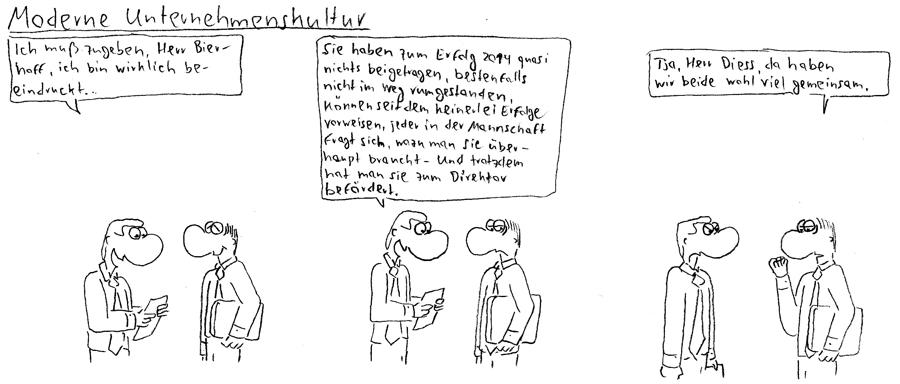 Moderne Unternehmenskultur
Ich muß zugeben, Herr Bier-
hoff, ich bin wirklich be-
eindruckt...
Sie haben zum Erfolg 2014 quasi
nichts beigetragen, bestenfalls
nicht im Weg rumgestanden,
können seitdem keinerlei Erfolge
vorweisen, jeder in der Mannschaft
fragt sich, wozu man Sie über-
haupt braucht - und trotzdem
hat man Sie zum Direktor
befördert.
Tja, Herr Diess, da haben
wir beide wohl viel gemeinsam.